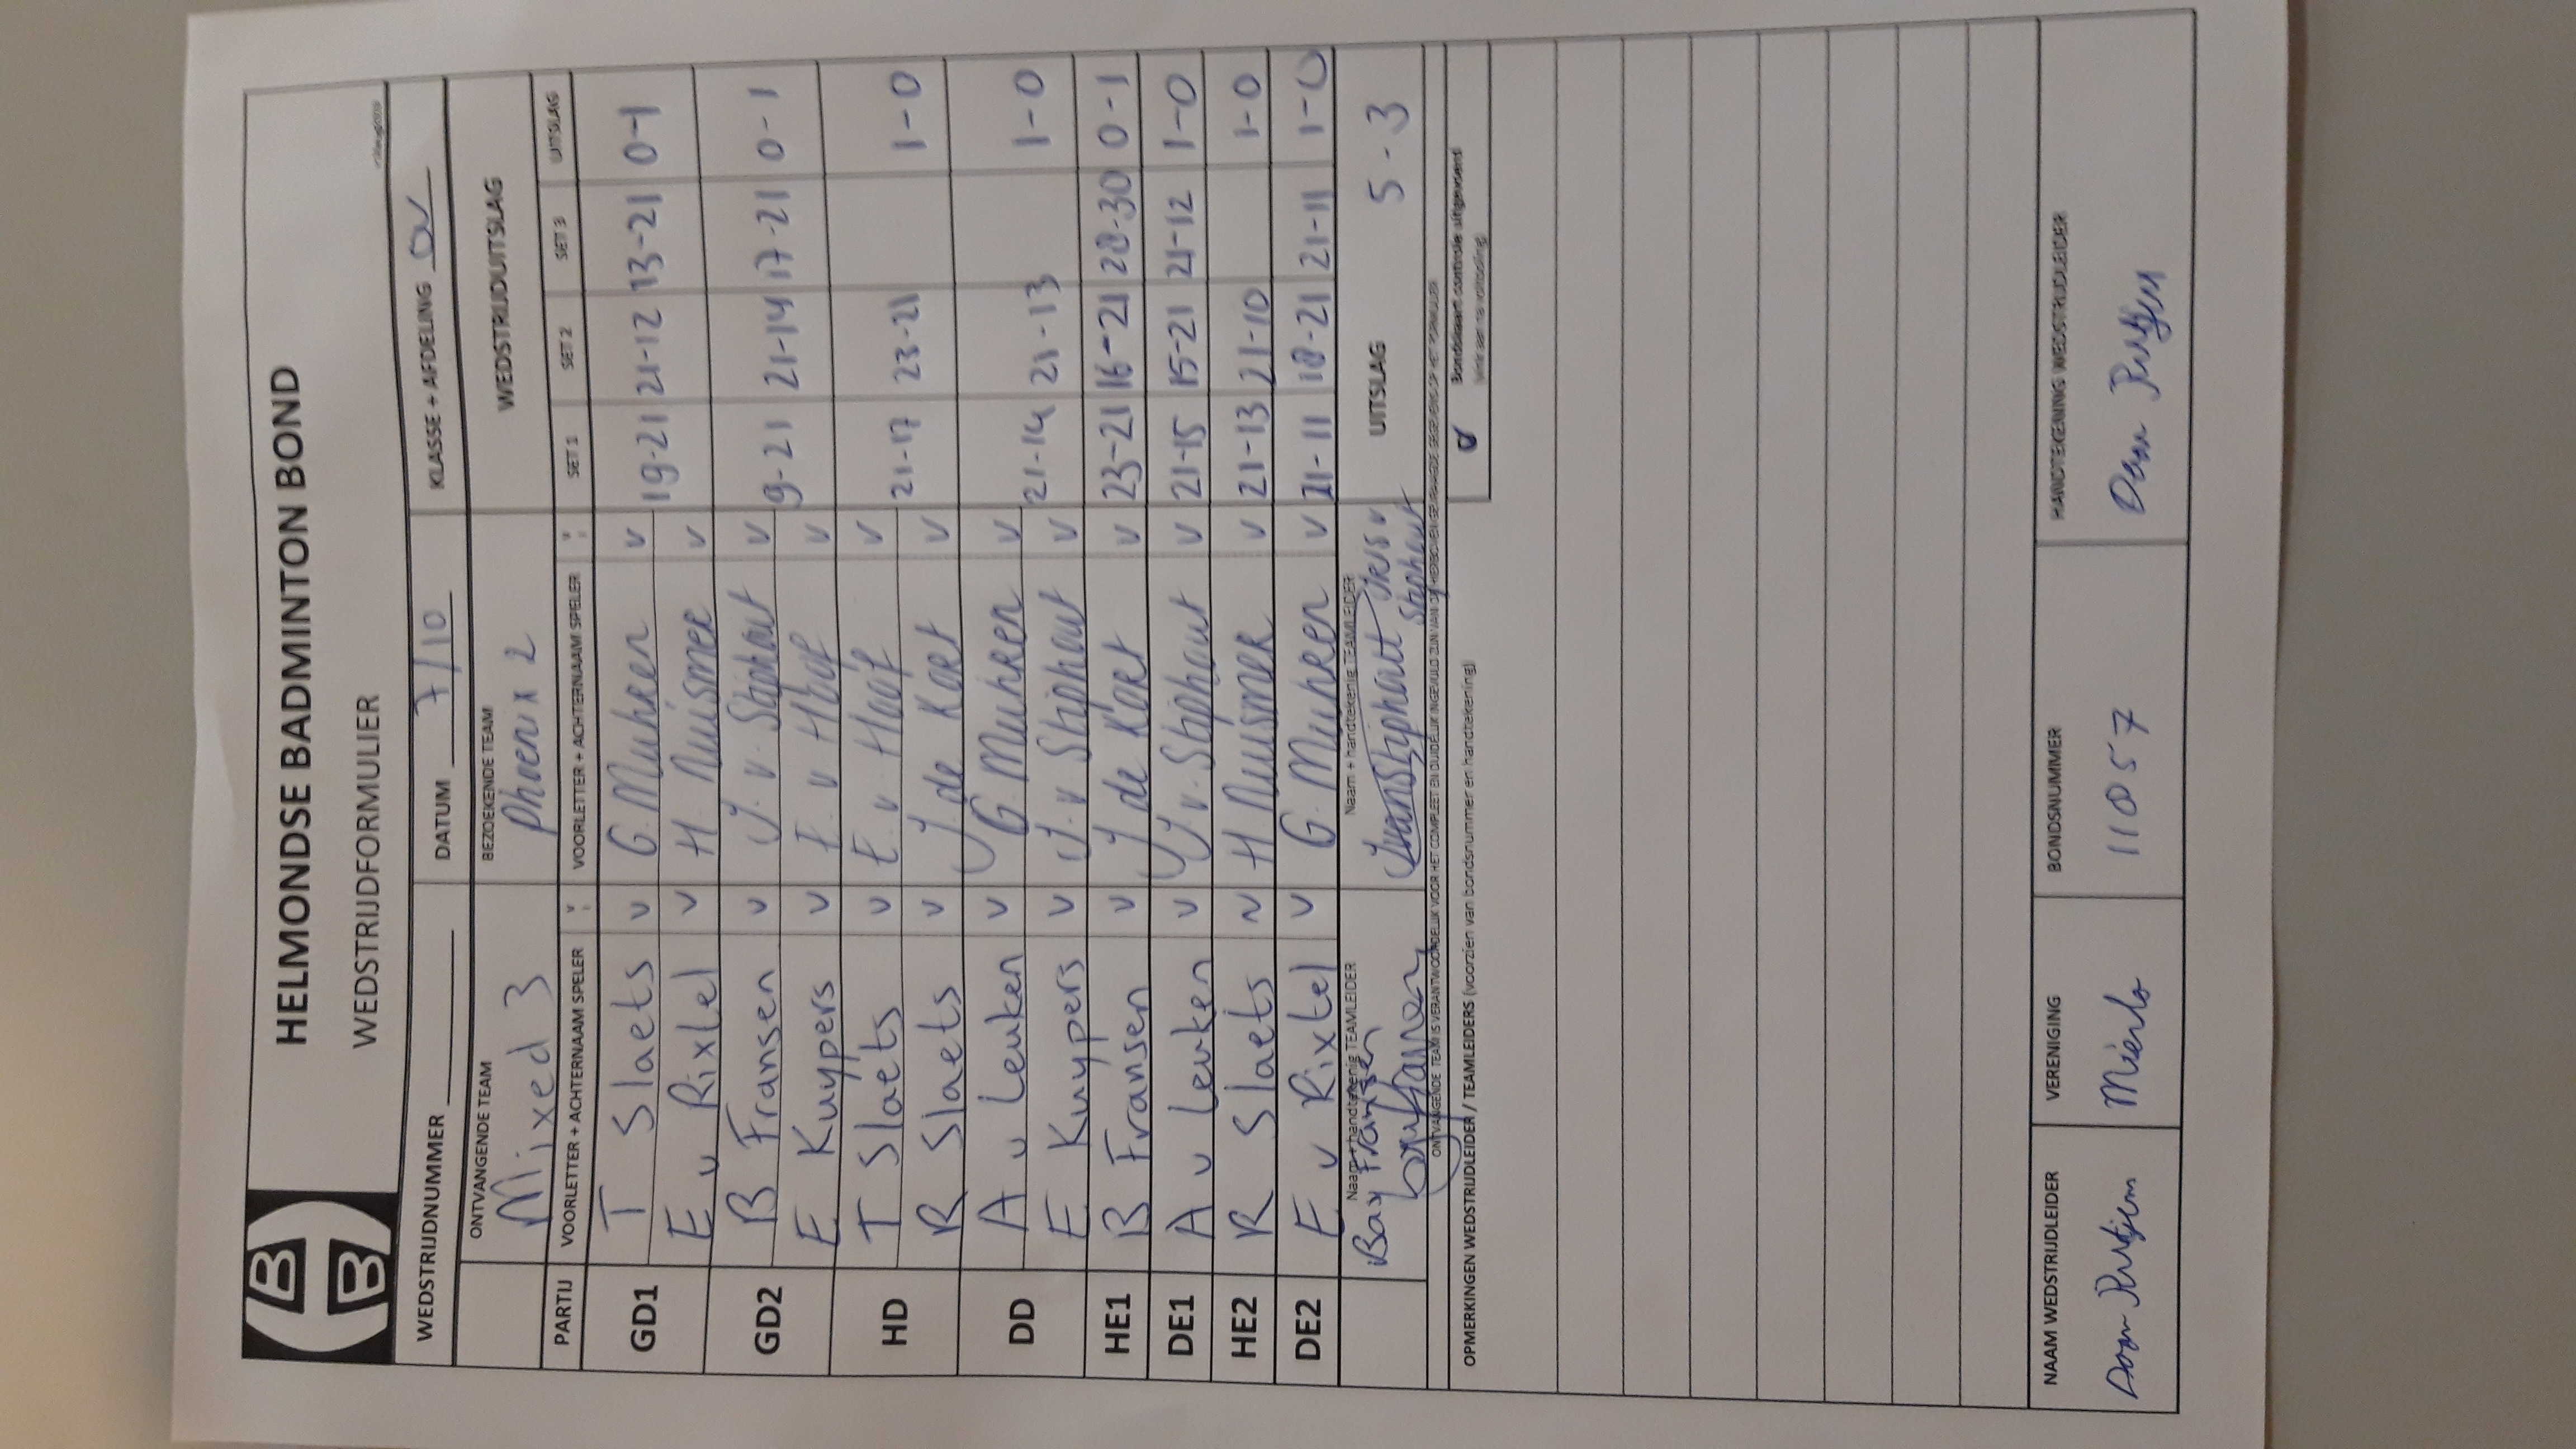 HELMONDSE BADMINTON BOND
WEDSTRIJDFORMULIER
WEDSTRIJDNUMMER DATUM 7/10 KLASSE + AFDELING
ONTVANGENDE TEAM BEZOEKENDE TEAM WEDSTRIJDUITSLAG
Mixed 3 Phoenix 2
PARTIJ VOORLETTER + ACHTERNAAM SPELER V VOORLETTER + ACHTERNAAM SPELER V SET 1 SET 2 SET 3 UITSLAG
GD1 T Slaets v G. Muhren v 19-21 21-12 13-21 0-1
E v Rixtel v H. Nuismer v
GD2 B Fransen v J. v. Stiphout v 9-21 21-14 17-21 0-1
E Kuypers v E. v Hoof v
HD T Slaets v E. v Hoof v 21-17 23-21 1-0
R Slaets v J de Kort v
DD A v Leuken v G. Muhren v 21-14 21-13 1-0
E Kuypers v J. v Stiphout v
HE1 B Fransen v J de Kort v 23-21 16-21 28-30 0-1
DE1 A v Leuken v J v. Stiphout v 21-15 15-21 21-12 1-0
HE2 R Slaets v H Nuismer v 21-13 21-10 1-0
DE2 E v Rixtel v G. Muhren v 21-11 18-21 21-11 1-0
Naam + handtekenig TEAMLEIDER Naam + handtekenig TEAMLEIDER UITSLAG 5-3
Fransen Stiphout
ONTVANGENDE TEAM IS VERANTWOORDELIJK VOOR HET COMPLEET EN DUIDELIJK INGEVULD ZIJN VAN DE HIERBOVEN GEVRAAGDE GEGEVENS OP HET FORMULIER
OPMERKINGEN WEDSTRIJDLEIDER / TEAMLEIDERS (voorzien van bondsnummer en handtekening)
Bondskaart controle uitgevoerd
NAAM WEDSTRIJDLEIDER VERENIGING BONDSNUMMER HANDTEKENING WEDSTRIJDLEIDER
Mierlo 110057